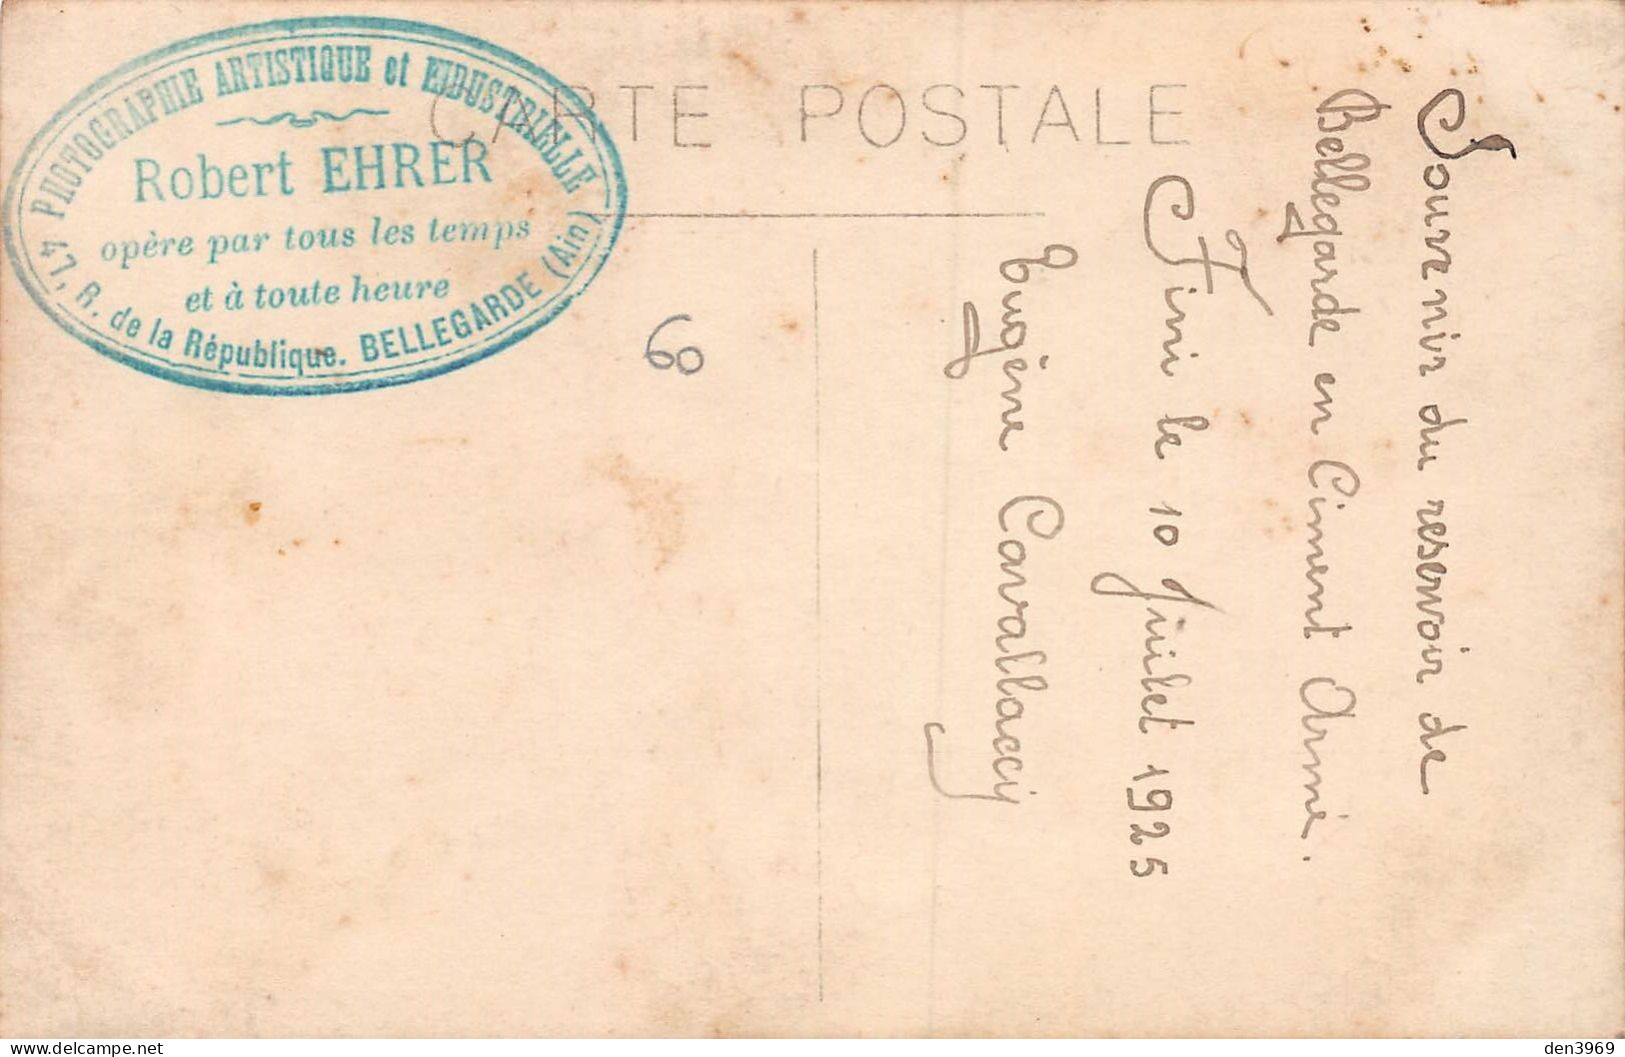 PHOTOGRAPHIE ARTISTIQUE et INDUSTRIELLE
Robert EHRER
opère par tous les temps
et à toute heure
47, R. de la République. BELLEGARDE (Ain)
CARTE POSTALE
60
Souvenir du reservoir de
Bellegarde en Ciment Armé.
Fini le 10 Juillet 1925
Eugène Cavallacci
den3969